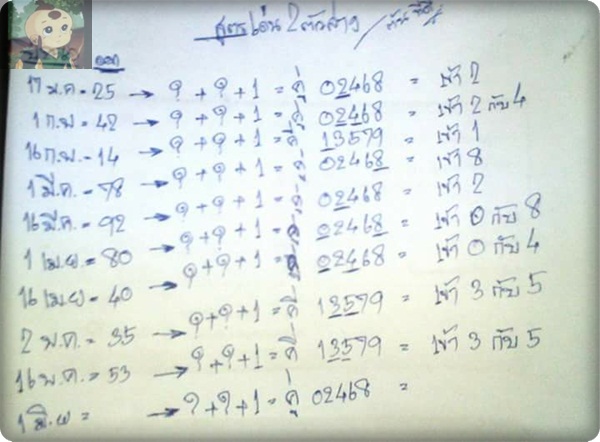 สูตรเด่น 2 ตัวล่าง
ออก
17 ม.ค = 25 → ? + ? + 1 = คู่ 02468 = เข้า 2
1 ก.พ = 42 → ? + ? + 1 = คู่ 02468 = เข้า 2 กับ 4
16 ก.พ = 14 → ? + ? + 1 = คี่ 13579 = เข้า 1
1 มี.ค = 78 → ? + ? + 1 = คู่ 02468 = เข้า 8
16 มี.ค = 92 → ? + ? + 1 = คู่ 02468 = เข้า 2
1 เม.ย = 80 → ? + ? + 1 = คู่ 02468 = เข้า 0 กับ 8
16 เม.ย = 40 → ? + ? + 1 = คู่ 02468 = เข้า 0 กับ 4
2 พ.ค. = 35 → ? + ? + 1 = คี่ 13579 = เข้า 3 กับ 5
16 พ.ค. = 53 → ? + ? + 1 = คี่ 13579 = เข้า 3 กับ 5
1 มิ.ย = → ? + ? + 1 = คู่ 02468 =